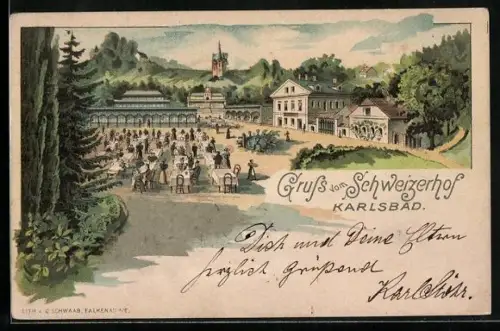 Gruß vom Schweizerhof
KARLSBAD.
Dich und Deine Eltern
herzlich Grüßend
Karl Stöhr.
LITH. v. G. SCHWAAB, FALKENAU A/E.